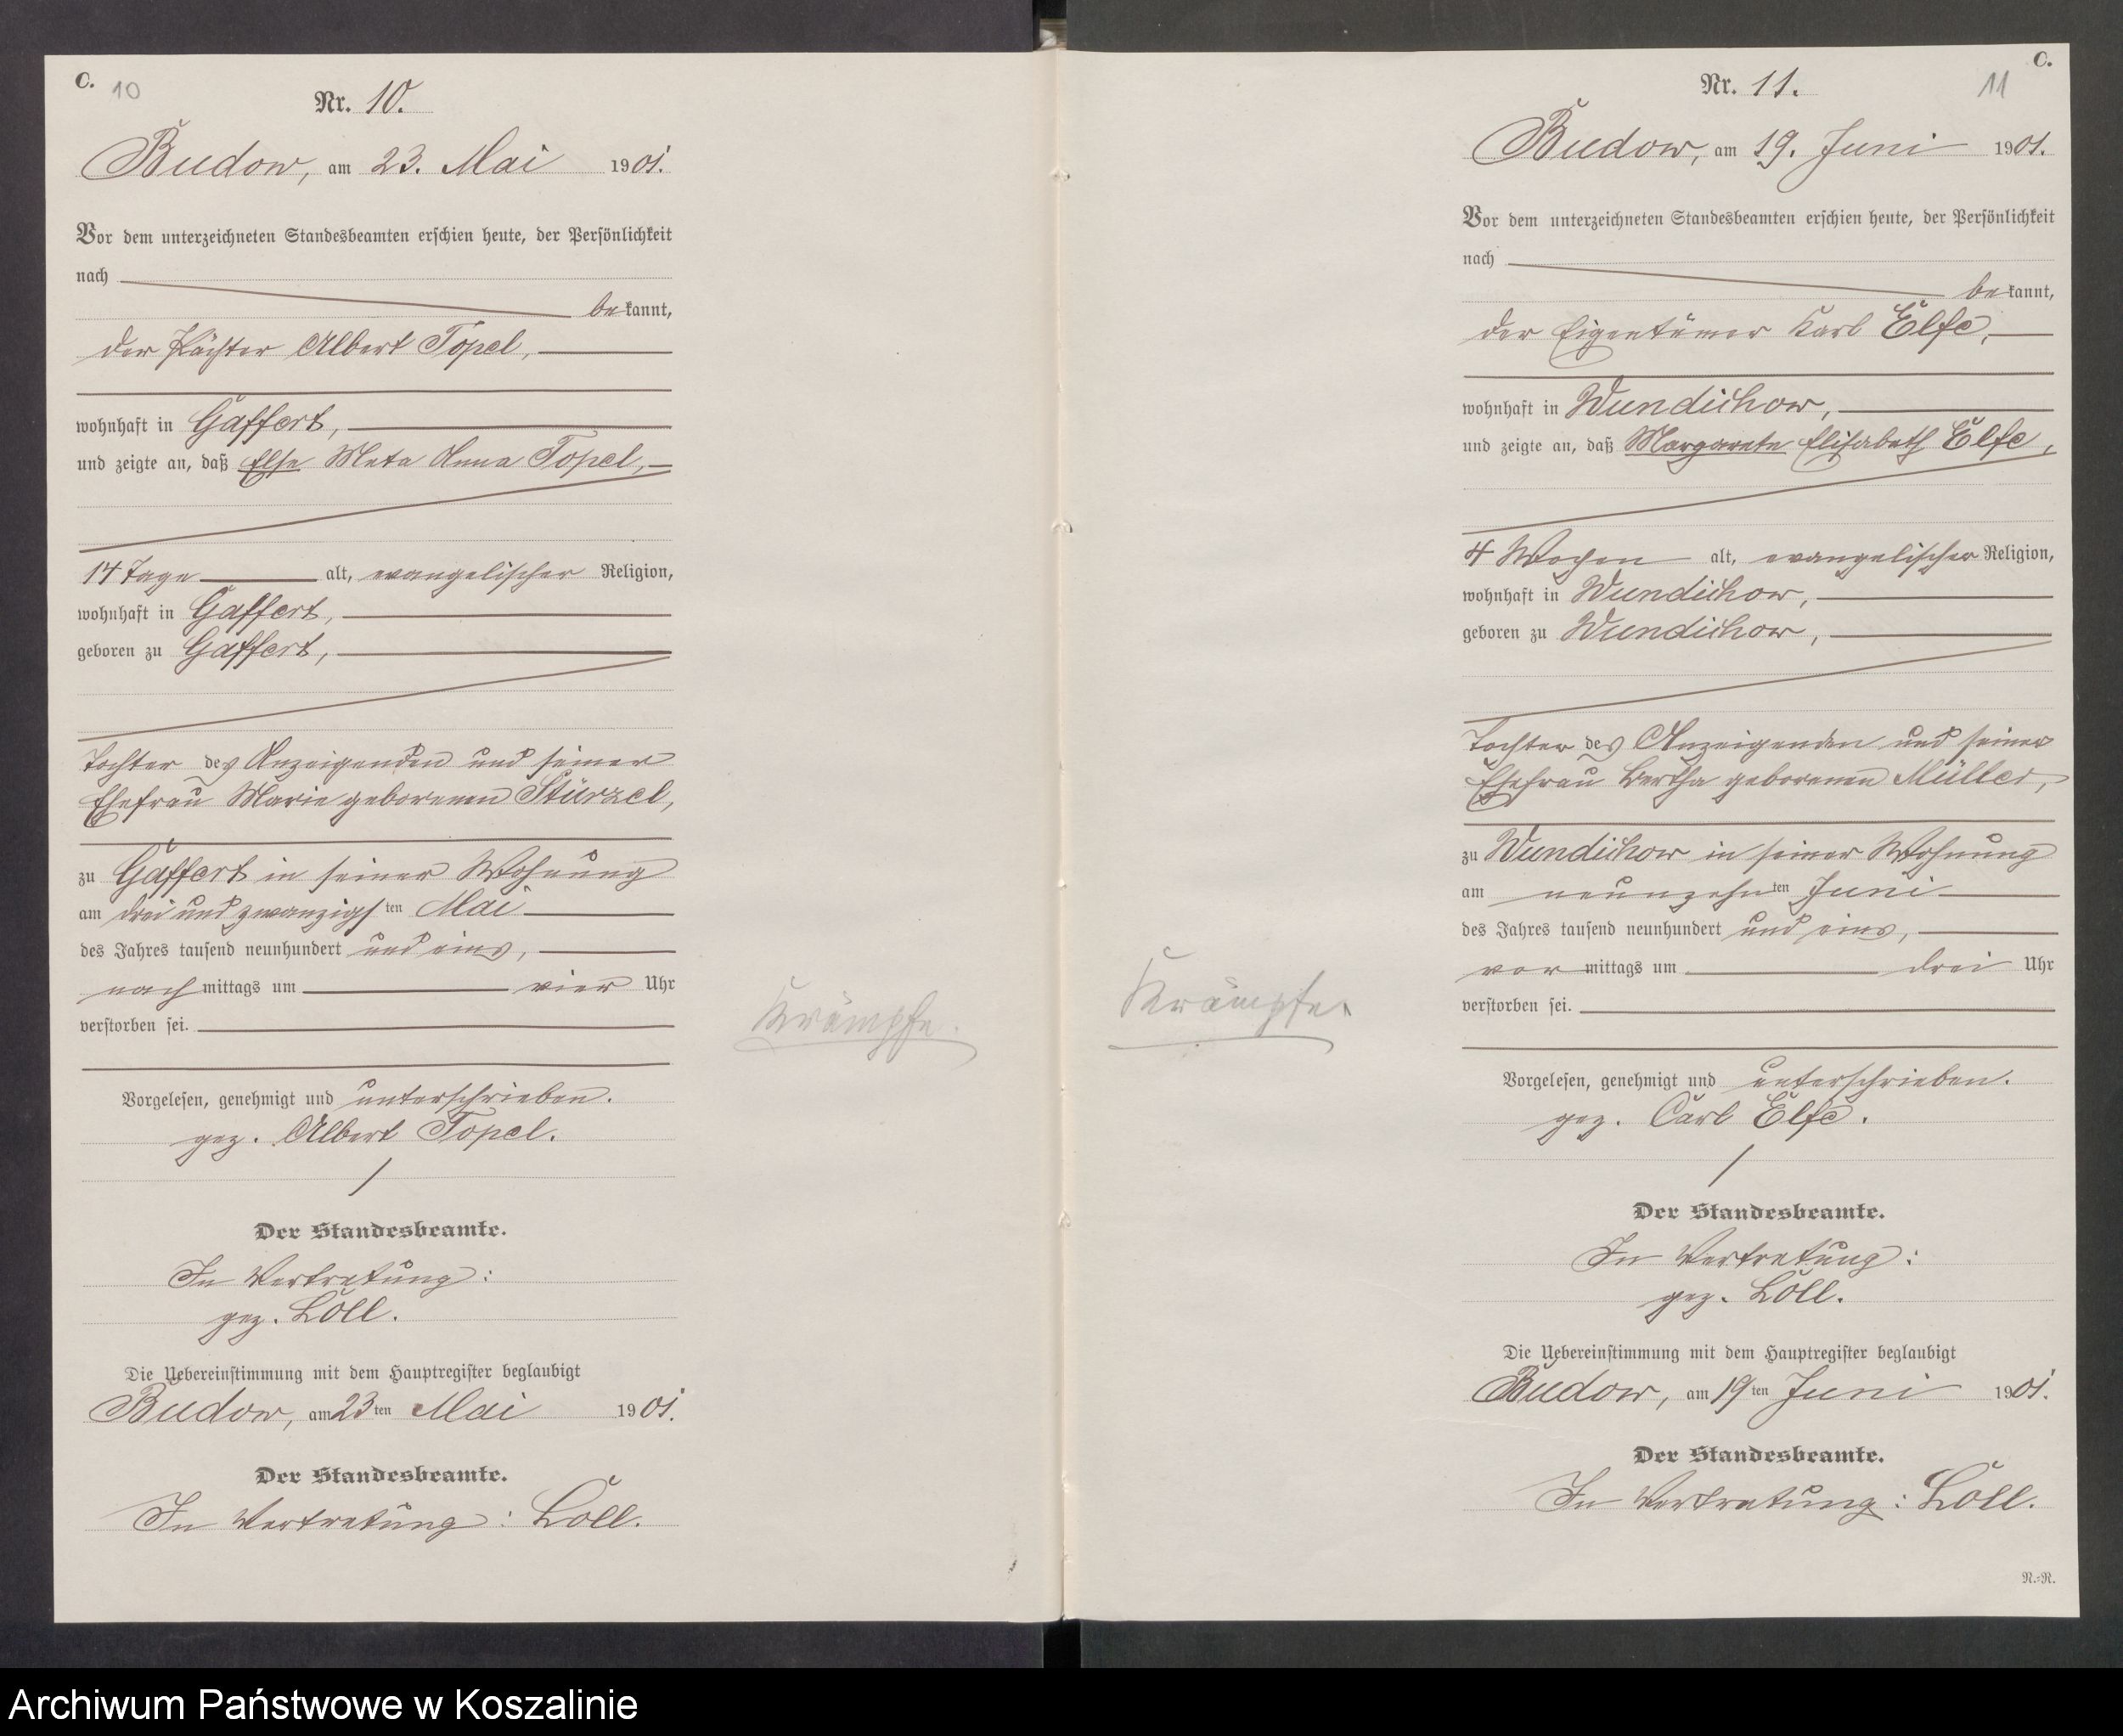 C.
10
Nr. 10.
Budow, am 23. Mai 1901.
Vor dem unterzeichneten Standesbeamten erschien heute, der Persönlichkeit
nach
bekannt,
der Pächter Albert Topel,
wohnhaft in Gaffert,
und zeigte an, daß Else Meta Anna Topel,
14 Tage alt, evangelischer Religion,
wohnhaft in Gaffert,
geboren zu Gaffert,
Tochter des Anzeigenden und seiner
Ehefrau Marie geborenen Stürzel,
zu Gaffert in seiner Wohnung
am drei und zwanzigsten Mai
des Jahres tausend neunhundert und eins,
nachmittags um vier Uhr
verstorben sei.
Krämpfe.
Vorgelesen, genehmigt und unterschrieben.
gez. Albert Topel.
Der Standesbeamte.
In Vertretung:
gez. Löll.
Die Uebereinstimmung mit dem Hauptregister beglaubigt
Budow, am 23ten Mai 1901.
Der Standesbeamte.
In Vertretung: Löll.
C.
11
Nr. 11.
Budow, am 19. Juni 1901.
Vor dem unterzeichneten Standesbeamten erschien heute, der Persönlichkeit
nach
bekannt,
der Eigentümer Karl Elfe,
wohnhaft in Wundichow,
und zeigte an, daß Margarete Elisabeth Elfe,
4 Wochen alt, evangelischer Religion,
wohnhaft in Wundichow,
geboren zu Wundichow,
Tochter des Anzeigenden und seiner
Ehefrau Bertha geborenen Müller,
zu Wundichow in seiner Wohnung
am neunzehnten Juni
des Jahres tausend neunhundert und eins,
vormittags um drei Uhr
verstorben sei.
Krämpfe.
Vorgelesen, genehmigt und unterschrieben.
gez. Carl Elfe.
Der Standesbeamte.
In Vertretung:
gez. Löll.
Die Uebereinstimmung mit dem Hauptregister beglaubigt
Budow, am 19ten Juni 1901.
Der Standesbeamte.
In Vertretung: Löll.
N.=R.
Archiwum Państwowe w Koszalinie